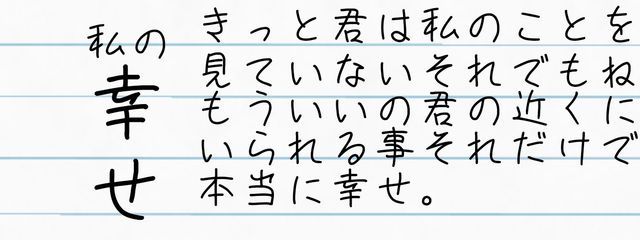 私の
幸せ
きっと君は私のことを
見ていないそれでもね
もういいの君の近くに
いられる事それだけで
本当に幸せ。